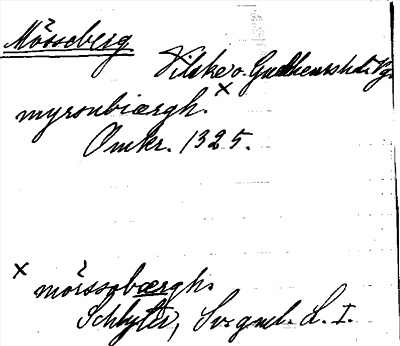 Mösseberg
Vilske o. Gudhems hd. Vg.
myrsnbiærgh. x
Omkr. 1325.
x mörssobærgh.
Schlyter, Sv. gml. L. I.